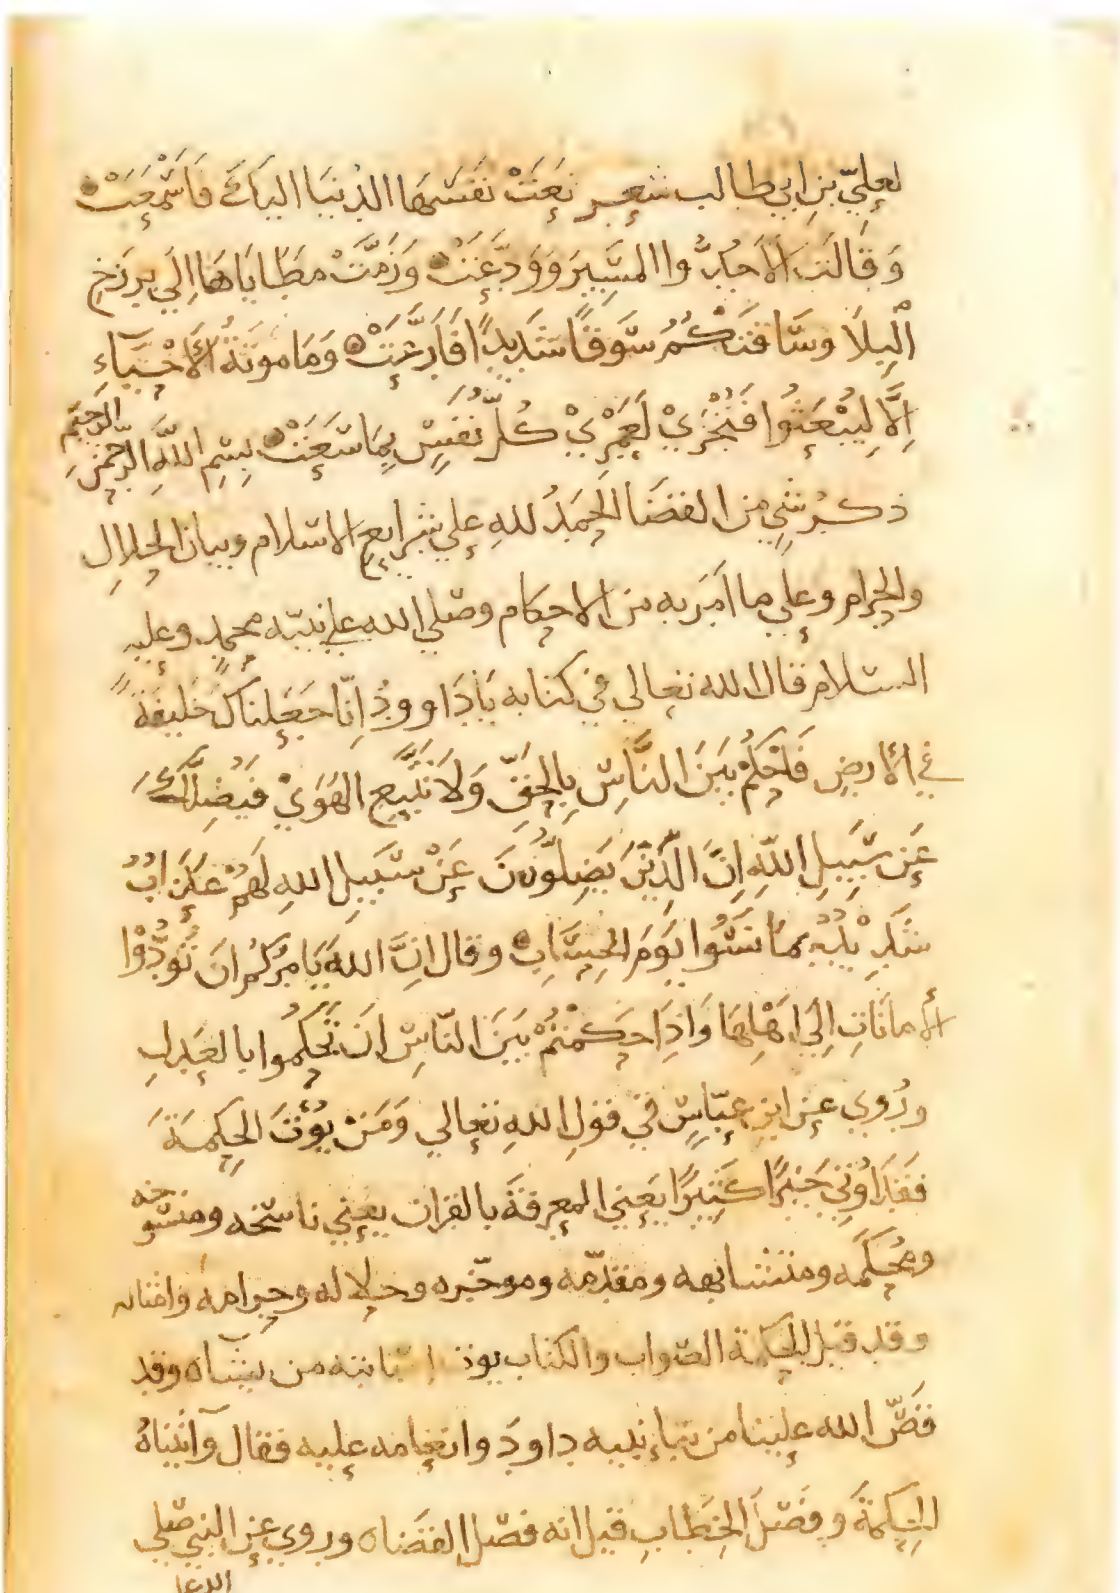 لعليّ بن ابي طالب شعر نَعَتْ نَفْسَهَا الدُّنيَا اليكَ فَاسْمَعَتْ
وَقَالَت الَا جِدُّوا المَسِيرَ وَوَدَّعَتْ وَزَمَّتْ مطَايَاهَا اِلَي برزخِ
الْبِلَا وسَاقتكُمُ سَوقًا شَدِيدًا فَارَدَعَتْ وَمَا موتَةُ الاَحْيَآء
اِلَّا ليُبْعَثُوا فَتُجْزَيْ لَعَمْرِيْ كُلُّ نَفْسٍ بِمَا سَعَتْ بِسْمِ اللَّهِ الرَّحْمَنِ الرَّحِيمِ
ذكر شيٍ من القضَا الحَمدُ للهِ علي شرايع الاسلام وبيان الحلالِ
والحرام وعلي ما امَرَ به من الاحكام وصّلي الله علي نبيّه محمدٍ وعليه
السّلام قال الله تعالي في كتابه يَادَاوودُ اِنّا جَعَلناكَ خَليفَةً
في الارضِ فَاحْكُمْ بَينَ النَّاسِ بِالحَقِّ وَلَا تَتَّبِعِ الهَوَيْ فَيُضِلَّكَ
عَن سَبِيلِ اللَّهِ اِنَّ الَّذِيْنَ يَضِلُّونَ عَنْ سَبِيلِ اللهِ لَهُمْ عَذَابٌ
شَدِيْدٌ بمَا نَسُوا يَومَ الحِسَابِ وقال اِنَّ اللهَ يَامُركُم ان تُؤَدُّوْا
الأمانَاتِ اِلَي اَهْلِهَا وَاِذَا حَكَمْتُمْ بَينَ النّاسِ اَن تَحْكُمُوا بالعَدلِ
ورُوي عن ابنِ عبّاسٍ في قولِ اللهِ تعالي وَمَنْ يُؤْتَ الحِكمَةَ
فَقَد اُوتيَ خَيْرًا كَثِيرًا يَعني المعرفَةَ بالقران يعني ناسّخه ومنسُوخه
ومُحكَمَه ومتشابهه ومقدّمه وموخّره وحلاله وحرامه وامثاله
وقد قيل الحكمة الصّواب والكتاب يوتي اصابته من يشاه وقد
قَصَّ الله علينا من نباءِ نبيه داودَ وانعامه عليه فقال وآتيناهُ
الحِكمَةَ وفَصْلَ الخِطابِ قيل انه فصْل القضاه وروي عن النبي صّلي